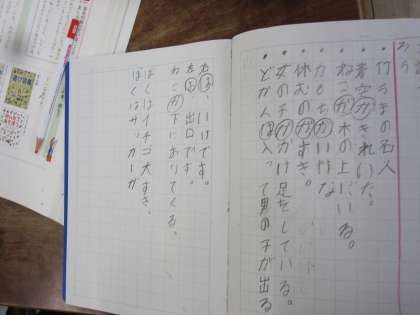 竹うまの名人
青空がきれいだ。
ねこが木の上にいる。
力もちい作な
休むのがすき。
女の子がかけ足をしている。
どかん入って男の子が出る
右は、いけです。
左は出口です。
ねこが下におりてくる。
ぼくはイチゴ大すき。
ぼくはサッカーが